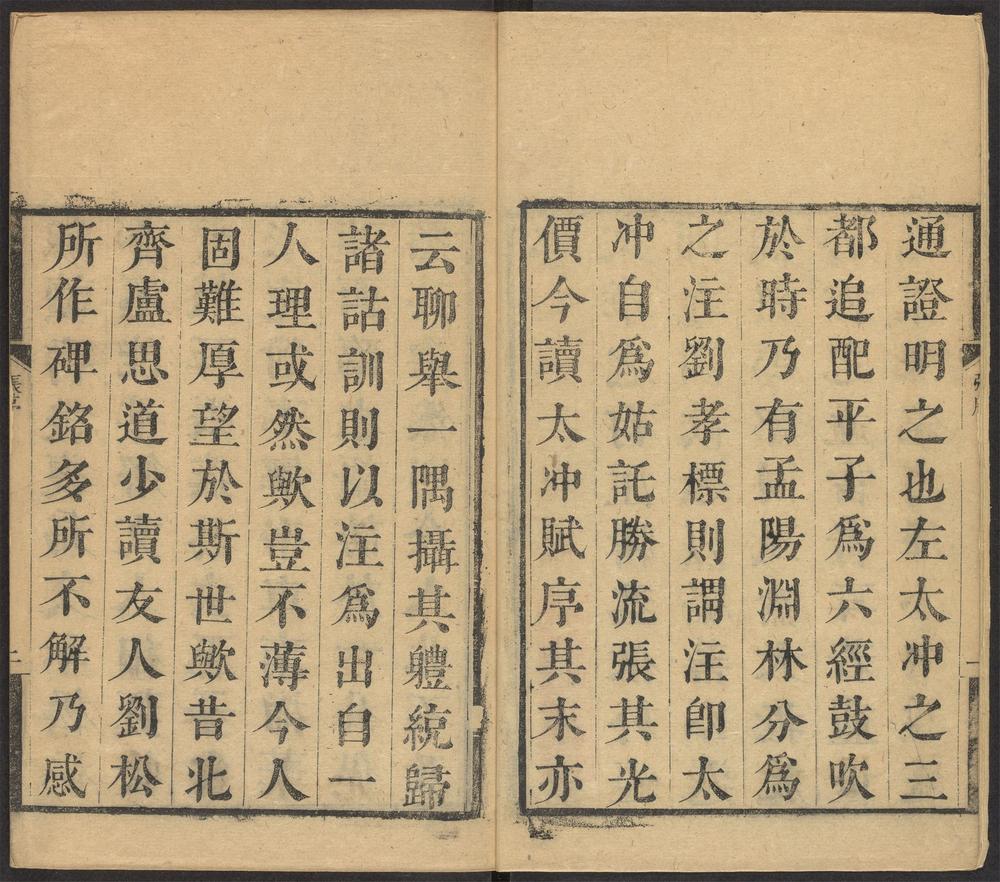 通證明之也左太冲之三
都追配平子爲六經鼓吹
於時乃有孟陽淵林分爲
之注劉孝標則謂注卽太
冲自爲姑託勝流張其光
價今讀太冲賦序其末亦
云聊舉一隅攝其軆統歸
諸詁訓則以注爲出自一
人理或然歟豈不薄今人
固難厚望於斯世歟昔北
齊盧思道少讀友人劉松
所作碑銘多所不解乃感